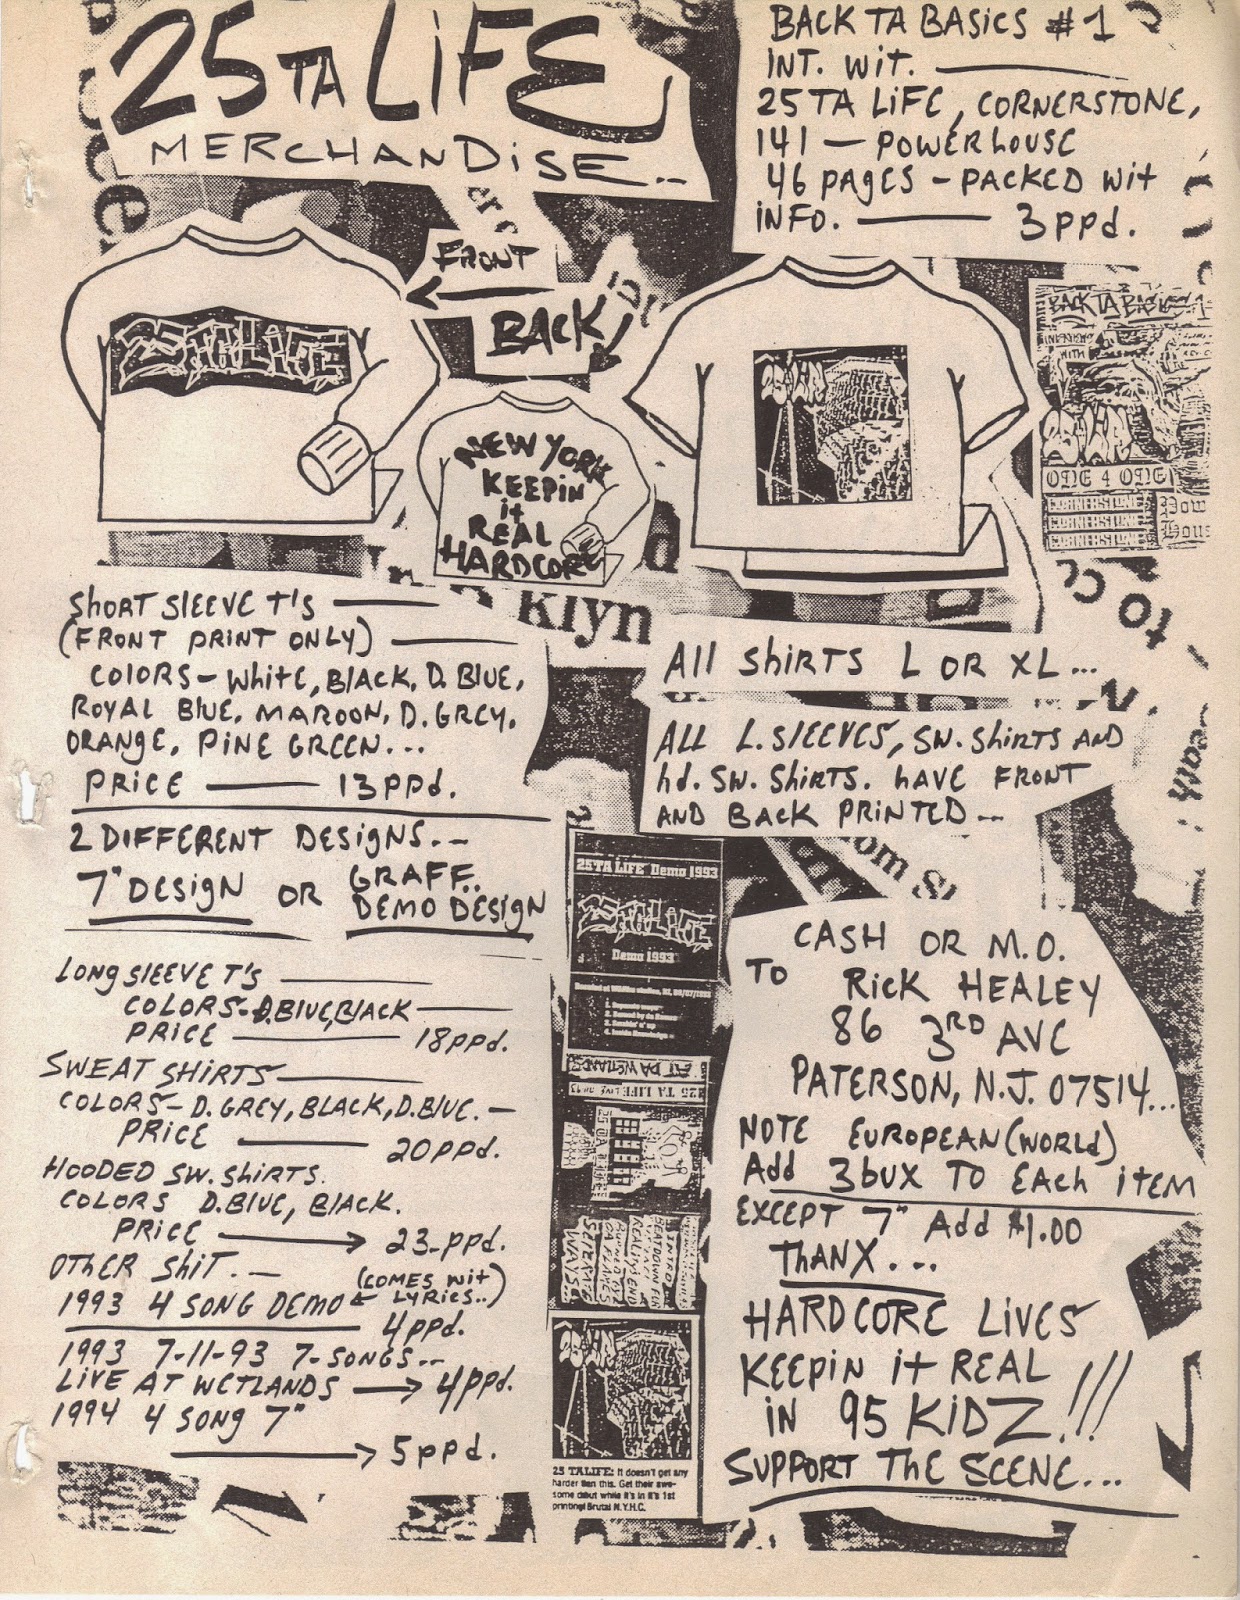 25 TA LIFE
MERCHANDISE..
BACK TA BASICS #1
INT. WIT.
25 TA LIFE, CORNERSTONE,
141 — POWERHOUSE
46 PAGES - PACKED WIT
INFO. — 3 PPd.
FRONT
BACK
25 TA LIFE
NEW YORK
KEEPIN
it
REAL
HARDCORE
BACK TA BASICS
INTERVIEWS
WITH
ONE 4 ONE
CORNERSTONE
CORNERSTONE
CORNERSTONE
Power
House
klyn
SHORT SLEEVE T'S
(FRONT PRINT ONLY)
COLORS - WHITE, BLACK, D. BLUE,
ROYAL BLUE, MAROON, D. GREY,
ORANGE, PINE GREEN...
PRICE — 13 PPd.
2 DIFFERENT DESIGNS.-
7" DESIGN OR GRAFF..
DEMO DESIGN
LONG SLEEVE T'S
COLORS - D.BLUE, BLACK
PRICE — 18 PPd.
SWEAT SHIRTS
COLORS - D. GREY, BLACK, D.BLUE. —
PRICE — 20 PPd.
HOODED SW. SHIRTS.
COLORS D.BLUE, BLACK.
PRICE → 23 PPd.
OTHER SHIT. —
1993 4 SONG DEMO ← (COMES WIT LYRICS..)
4 PPd.
1993 7-11-93 7-SONGS..
LIVE AT WETLANDS → 4 PPd.
1994 4 SONG 7"
→ 5 PPd.
All SHIRTS L OR XL...
ALL L. SLEEVES, SW. SHIRTS AND
hd. SW. SHIRTS. HAVE FRONT
AND BACK PRINTED...
25 TA LIFE Demo 1993
25 TA LIFE
Demo 1993
25 TALIFE: It doesn't get any
harder than this. Get their awe-
some debut while it's in it's 1st
printing! Brutal N.Y.H.C.
CASH OR M.O.
TO RICK HEALEY
86 3RD AVE
PATERSON, N.J. 07514...
NOTE EUROPEAN (WORLD)
Add 3 bUX TO EACH ITEM
EXCEPT 7" Add $1.00
THANX...
HARDCORE LIVES
KEEPIN it REAL
IN 95 KIDZ!!!
SUPPORT THE SCENE...